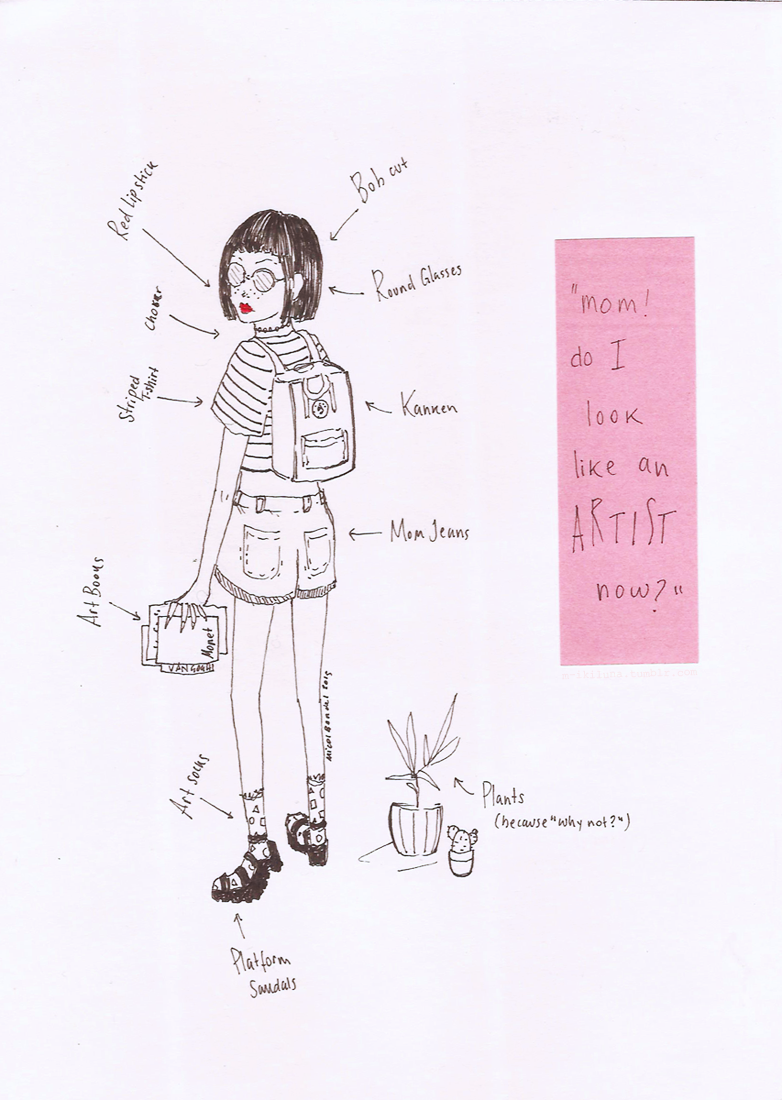 Red lipstick
Bob cut
Round Glasses
Choker
Striped
T-shirt
Kanken
Mom Jeans
Art Books
Monet
VAN GOGH
Art socks
Plants
(because "why not?")
Platform
Sandals
"mom!
do I
look
like an
ARTIST
now?"